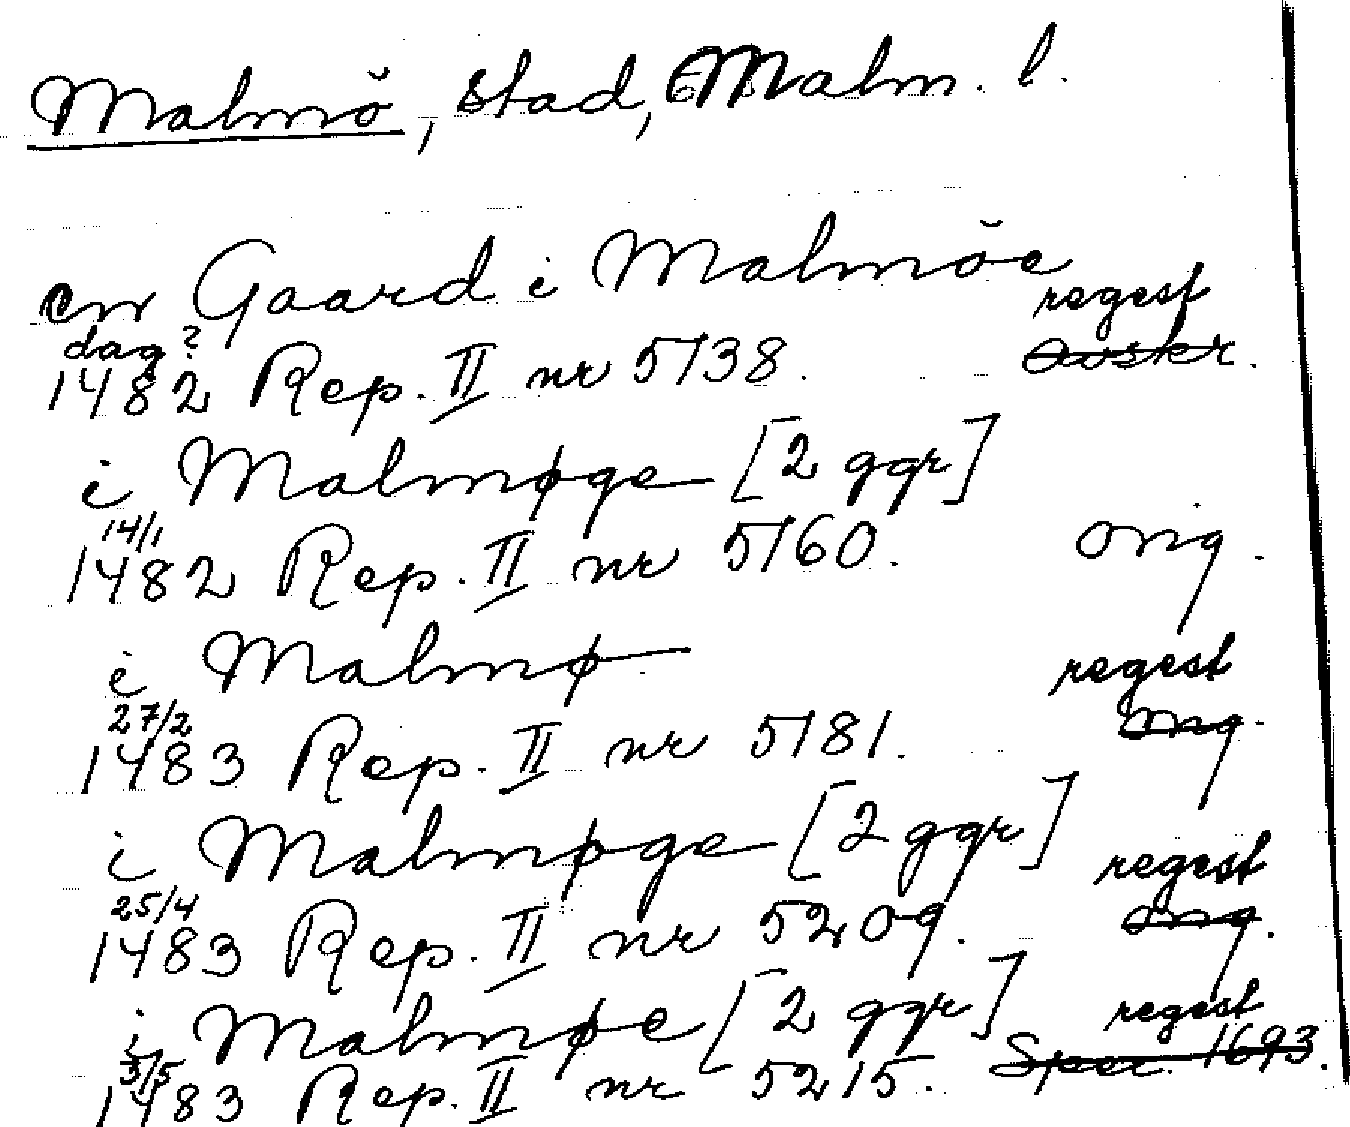 Malmö, stad, Malm. l.
en Gaard i Malmöe
regest
dag?
1482 Rep. II nr 5138. Avskr.
i Malmøge [2 ggr]
14/1
1482 Rep. II nr 5160. orig.
i Malmø
regest
27/2
1483 Rep. II nr 5181. orig.
i Malmøge [2 ggr]
regest
25/4
1483 Rep. II nr 5209. orig.
i Malmøe [2 ggr] regest
5/5 Sper. 1693.
1483 Rep. II nr 5215.